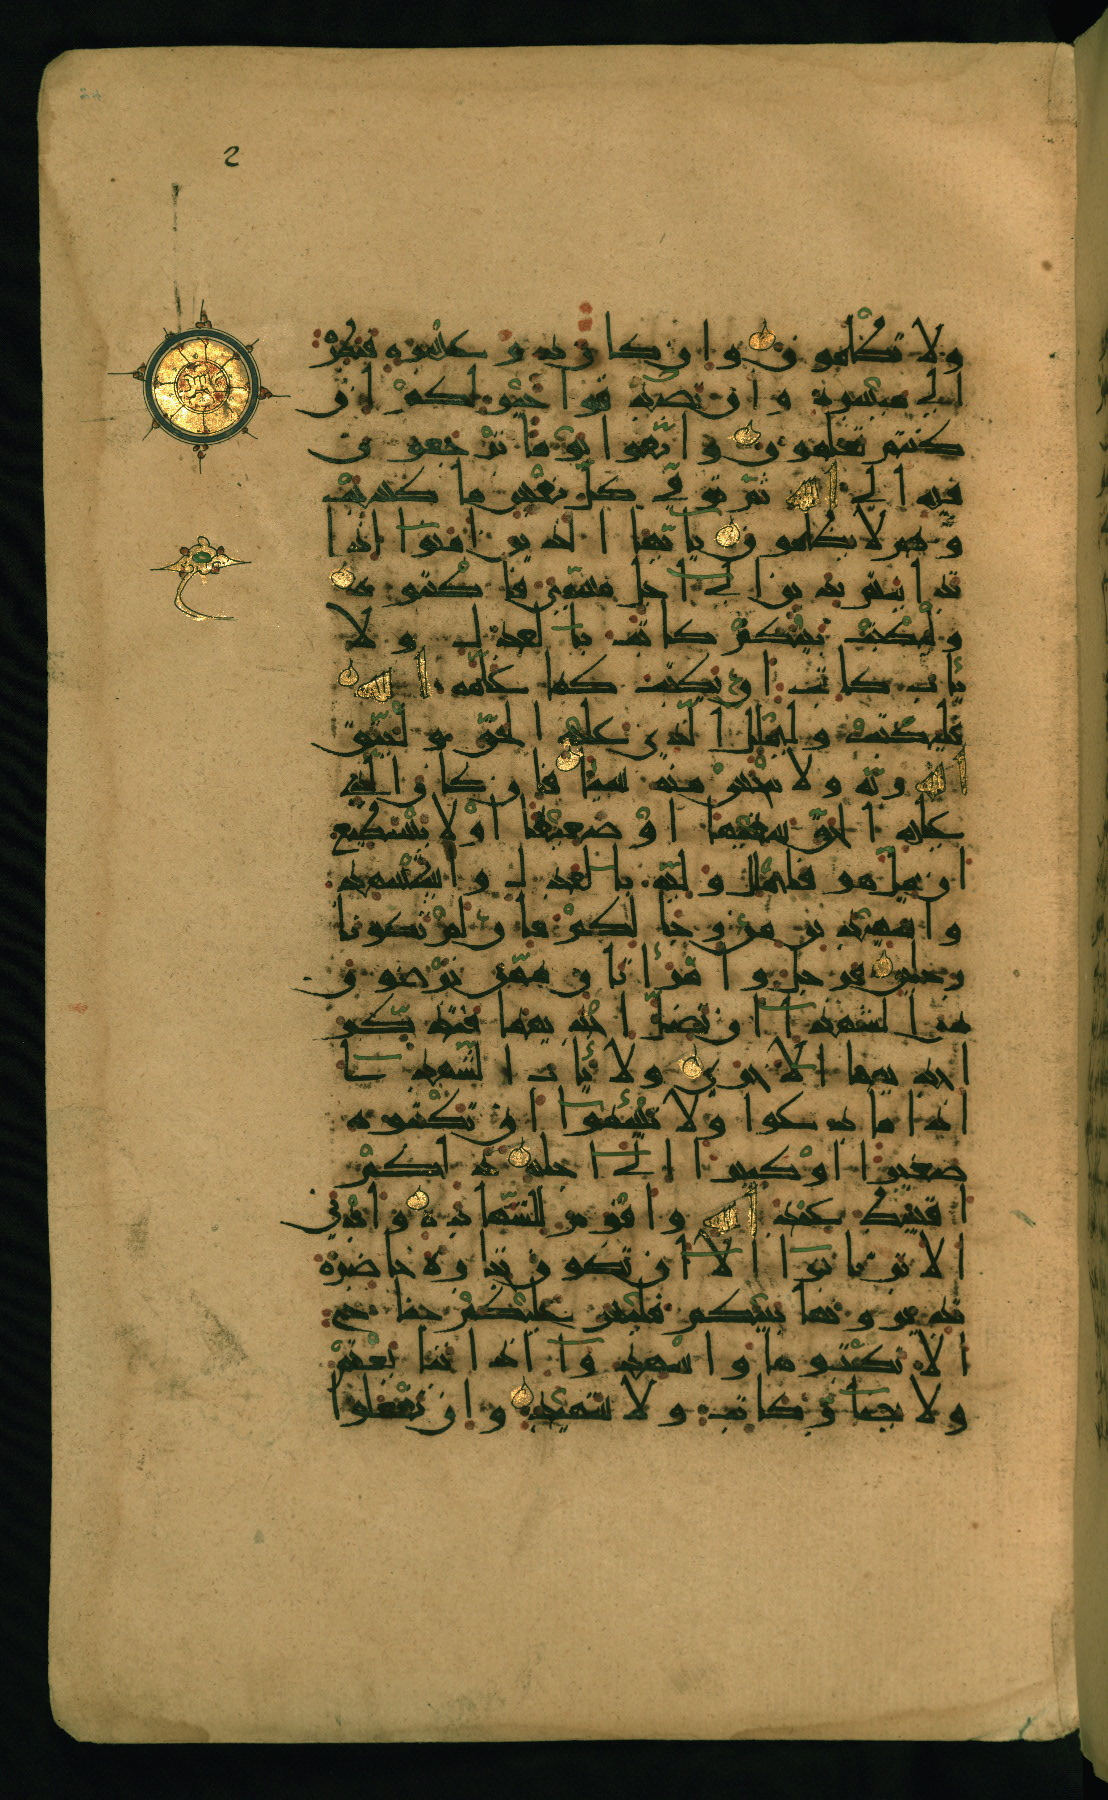 2
ولا تظلمون وان كان ذو عسرة فنظرة
الى ميسرة وان تصدقوا خير لكم ان
كنتم تعلمون واتقوا يوما ترجعون
فيه الى الله ثم توفى كل نفس ما كسبت
وهم لا يظلمون يايها الذين امنوا اذا
تداينتم بدين الى اجل مسمى فاكتبوه
وليكتب بينكم كاتب بالعدل ولا
يأب كاتب ان يكتب كما علمه الله
فليكتب وليملل الذي عليه الحق وليتق
الله ربه ولا يبخس منه شيئا فان كان الذي
عليه الحق سفيها او ضعيفا او لا يستطيع
ان يمل هو فليملل وليه بالعدل واستشهد
وا شهيدين من رجالكم فان لم يكونا
رجلين فرجل وامرأتان ممن ترضون
من الشهدا ان تضل احديهما فتذكر
احديهما الاخرى ولا يأب الشهدا
اذا ما دعوا ولا تسئموا ان تكتبوه
صغيرا او كبيرا الى اجله ذلكم
اقسط عند الله واقوم للشهادة وادنى
الا ترتابوا الا ان تكون تجارة حاضرة
تديرونها بينكم فليس عليكم جناح
الا تكتبوها واشهدوا اذا تبايعتم
ولا يضار كاتب ولا شهيد وان تفعلوا